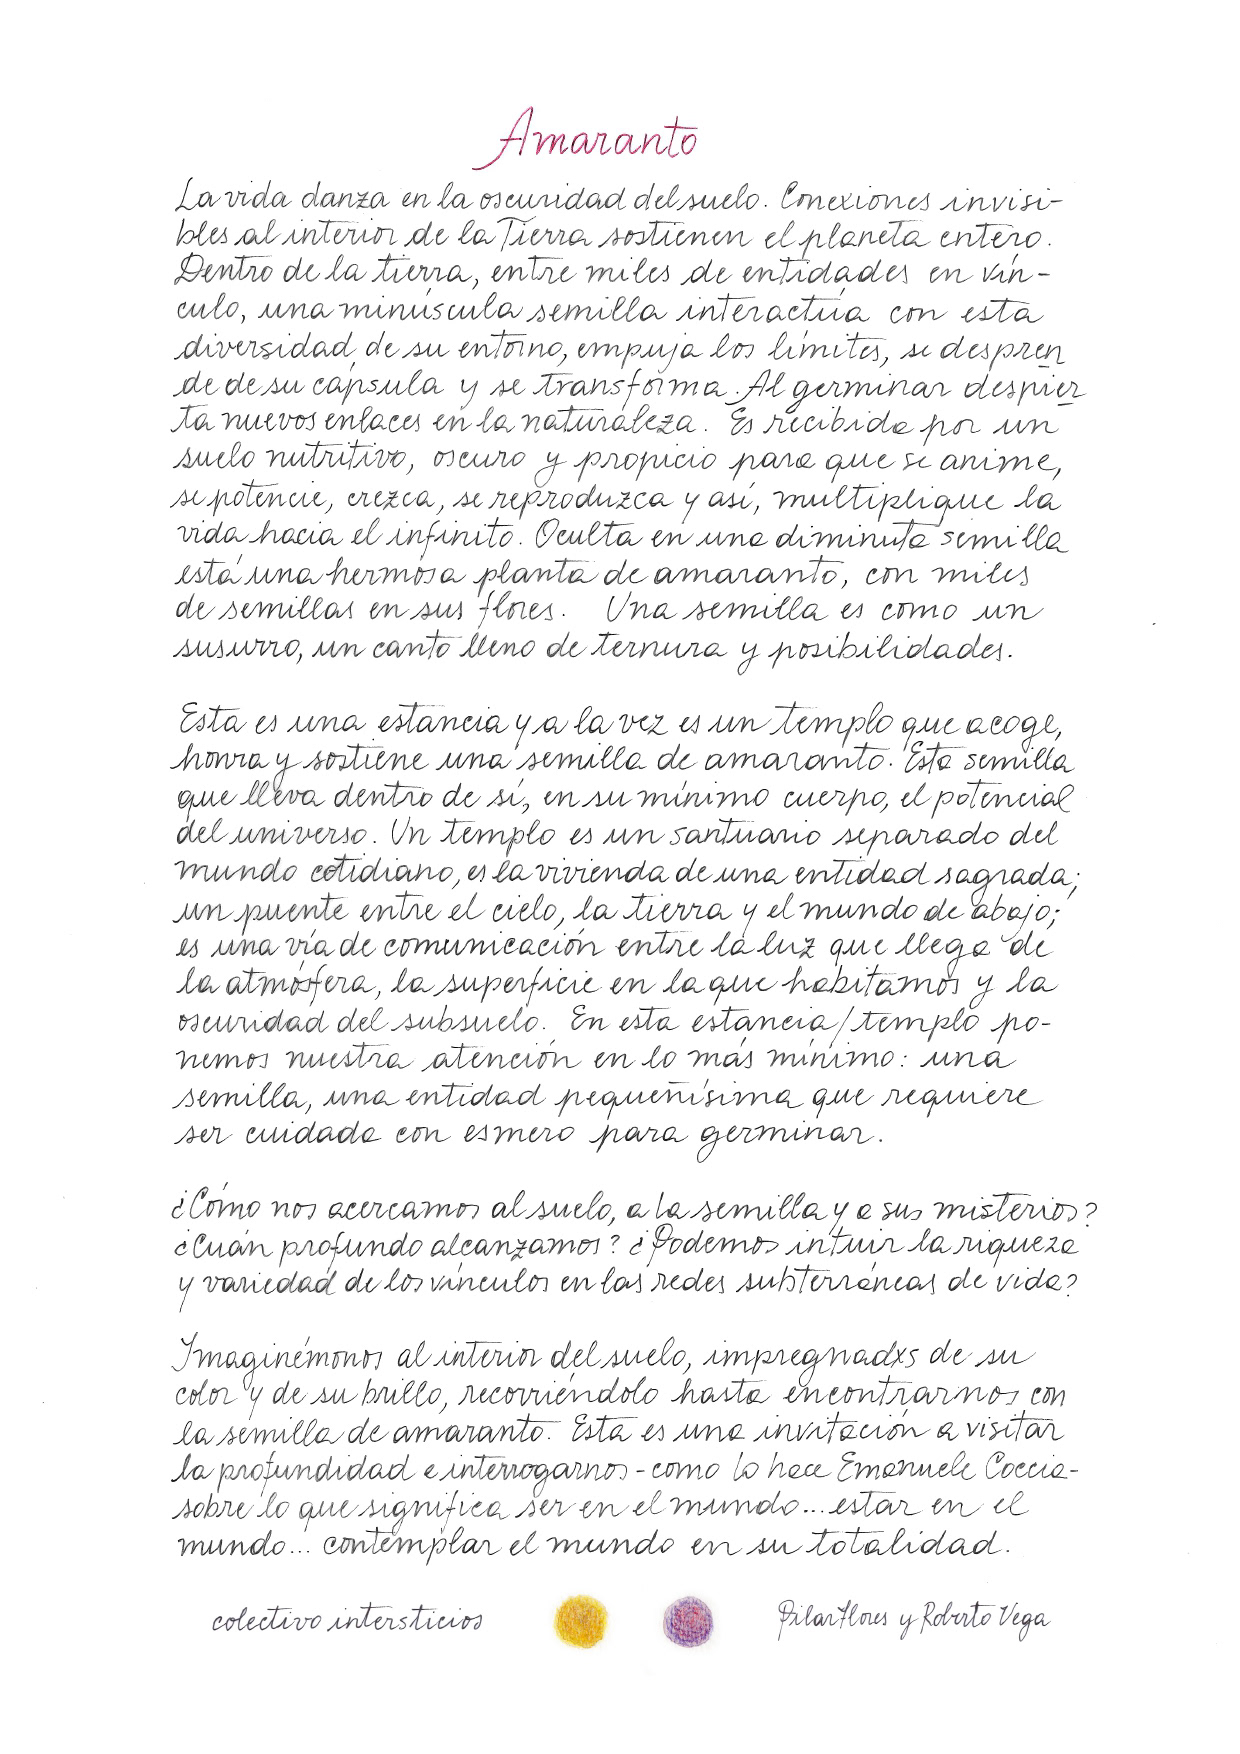 Amaranto
La vida danza en la oscuridad del suelo. Conexiones invisi-
bles al interior de la Tierra sostienen el planeta entero.
Dentro de la tierra, entre miles de entidades en vín-
culo, una minúscula semilla interactúa con esta
diversidad de su entorno, empuja los límites, se despren
de de su cápsula y se transforma. Al germinar despier
ta nuevos enlaces en la naturaleza. Es recibida por un
suelo nutritivo, oscuro y propicio para que se anime,
se potencie, crezca, se reproduzca y así, multiplique la
vida hacia el infinito. Oculta en una diminuta semilla
está una hermosa planta de amaranto, con miles
de semillas en sus flores. Una semilla es como un
susurro, un canto lleno de ternura y posibilidades.
Esta es una estancia y a la vez es un templo que acoge,
honra y sostiene una semilla de amaranto. Esta semilla
que lleva dentro de sí, en su mínimo cuerpo, el potencial
del universo. Un templo es un santuario separado del
mundo cotidiano, es la vivienda de una entidad sagrada;
un puente entre el cielo, la tierra y el mundo de abajo;
es una vía de comunicación entre la luz que llega de
la atmósfera, la superficie en la que habitamos y la
oscuridad del subsuelo. En esta estancia/templo po-
nemos nuestra atención en lo más mínimo: una
semilla, una entidad pequeñísima que requiere
ser cuidada con esmero para germinar.
¿Cómo nos acercamos al suelo, a la semilla y a sus misterios?
¿Cuán profundo alcanzamos? ¿Podemos intuir la riqueza
y variedad de los vínculos en las redes subterráneas de vida?
Imaginémonos al interior del suelo, impregnadxs de su
color y de su brillo, recorriéndolo hasta encontrarnos con
la semilla de amaranto. Esta es una invitación a visitar
la profundidad e interrogarnos - como lo hace Emanuele Coccia-
sobre lo que significa ser en el mundo... estar en el
mundo... contemplar el mundo en su totalidad.
colectivo intersticios
Pilar Flores y Roberto Vega